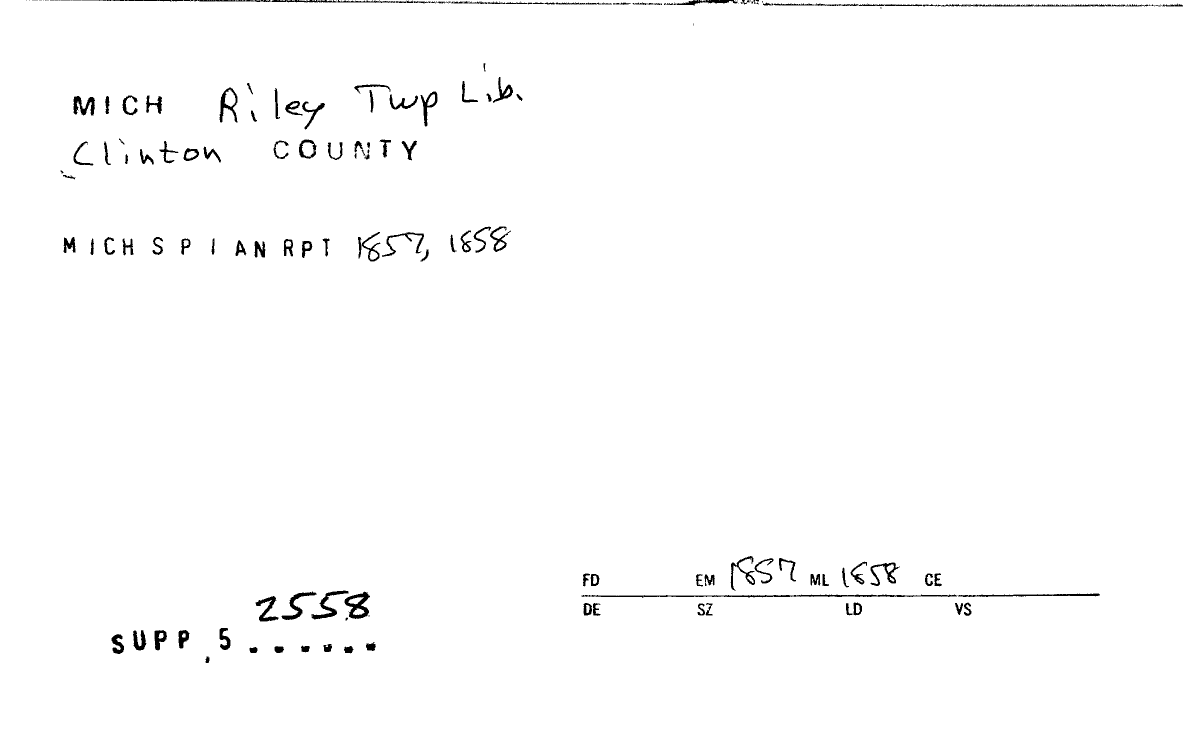 MICH Riley Twp Lib.
Clinton COUNTY
MICH S P I AN RPT 1857, 1858
FD EM 1857 ML 1858 CE
DE SZ LD VS
2558
SUPP, 5 ......